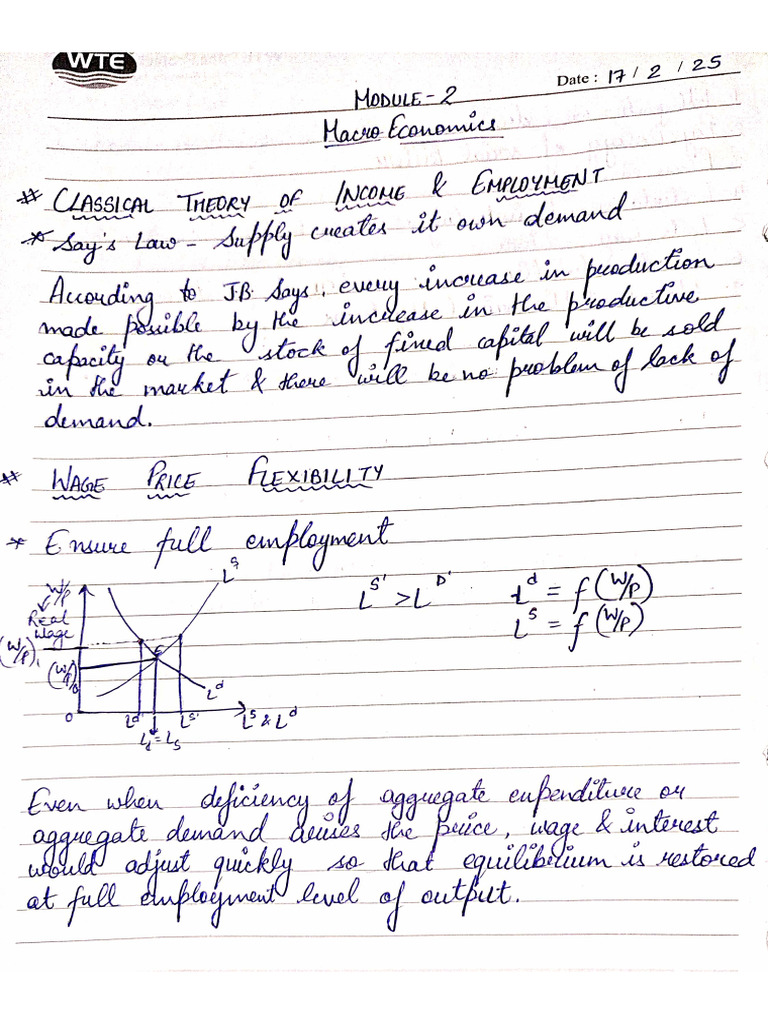 WTE
Date : 17 / 2 / 25
MODULE - 2
Macro Economics
** CLASSICAL THEORY OF INCOME & EMPLOYMENT
* Say's Law - Supply creates it own demand
According to J.B. Says, every increase in production
made possible by the increase in the productive
capacity or the stock of fixed capital will be sold
in the market & there will be no problem of lack of
demand.
** WAGE PRICE FLEXIBILITY
* Ensure full employment
W/P
Real
Wage
(W/P)₁
(W/P)₀
E
Lˢ
Lᵈ
0
Lᵈ' Lˢ' Lˢ & Lᵈ
L𝒹 = Lₛ
Lˢ' > Lᴰ'
Lᵈ = f(W/P)
Lˢ = f(W/P)
Even when deficiency of aggregate expenditure or
aggregate demand arises the price, wage & interest
would adjust quickly so that equilibrium is restored
at full employment level of output.